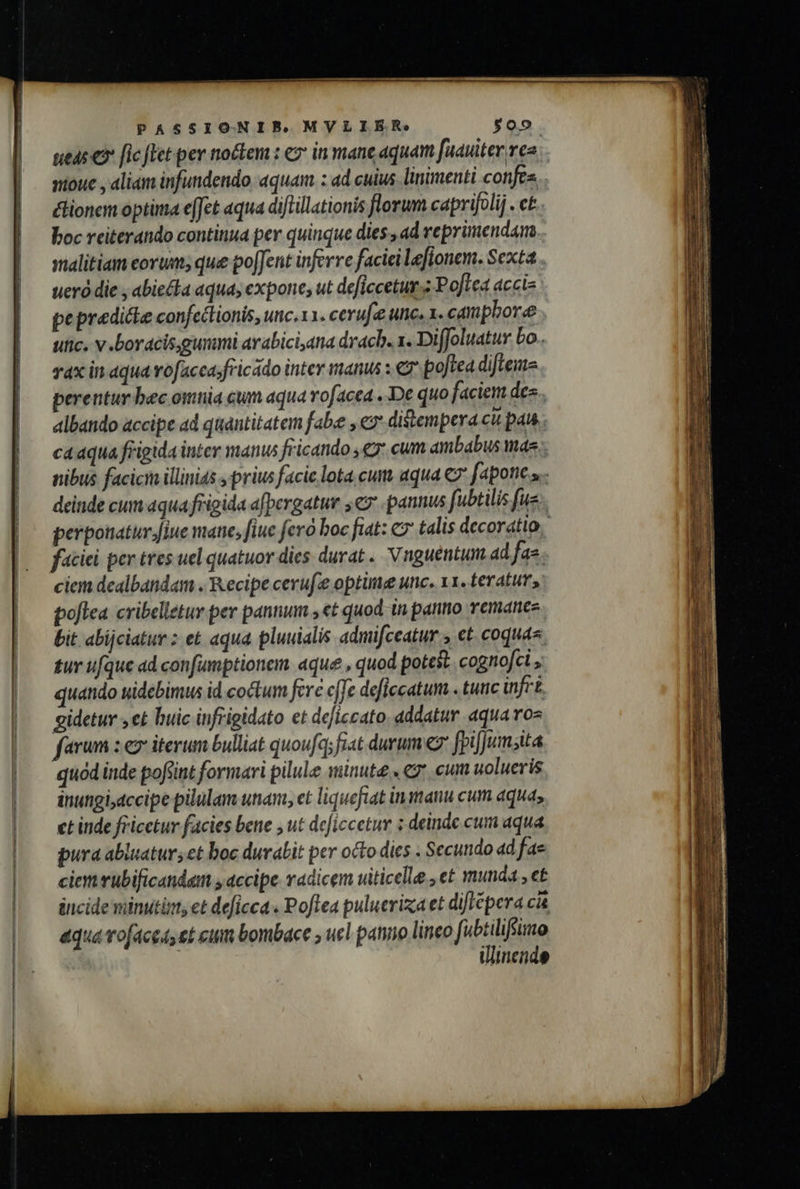 PASSIONIB. MVLIER. 509
ueas & sic stet per noctem : & in mane aquam suauiter re=
moue , aliam infundendo aquam : ad cuius linimenti confe=
ctionem optima esset aqua distillationis florum caprifolij . et
hoc reiterando continua per quinque dies , ad reprimendam
malitiam eorum, quæ possent inferre faciei lesionem. Sexta
uerò die , abiecta aqua, expone, ut desiccetur : Postea acci=
pe prædictæ confectionis, unc.11. cerusæ unc. 1. camphoræ
unc. v.boracis,gummi arabici,ana drach. 1. Dissoluatur bo.
rax in aqua rosacea,fricãdo inter manus : & postea distem=
perentur hæc omnia cum aqua rosacea . De quo faciem de=
albando accipe ad quantitatem fabæ , & distempera cũ pau
ca aqua frigida inter manus fricando , & cum ambabus ma=
nibus faciem illinias , prius facie lota cum aqua & sapone ,
deinde cum aqua frigida aspergatur , & pannus subtilis su=
perponatur,siue mane, siue serò hoc fiat: & talis decoratio
faciei per tres uel quatuor dies durat . Vnguentum ad fa=
ciem dealbandam . Recipe cerusæ optimæ unc. 11. teratur,
postea cribelletur per pannum , et quod in panno remane=
bit abijciatur : et aqua pluuialis admisceatur , et coqua=
tur usque ad consumptionem aquæ , quod potest cognosci ,
quando uidebimus id coctum ferè esse desiccatum . tunc infri
gidetur , et huic infrigidato et desiccato addatur aqua ro=
sarum : & iterum bulliat quousq; fiat durum & spissum,ita
quòd inde possint formari pilulæ minutæ . & cum uolueris
inungi,accipe pilulam unam, et liquefiat in manu cum aqua,
et inde fricetur facies bene , ut desiccetur : deinde cum aqua
pura abluatur, et hoc durabit per octo dies . Secundo ad fa=
ciem rubificandam , accipe radicem uiticellæ , et munda , et
incide minutim, et desicca . Postea pulueriza et distẽpera cũ
aqua rosacea, et cum bombace , uel panno lineo subtilissimo
illinendo